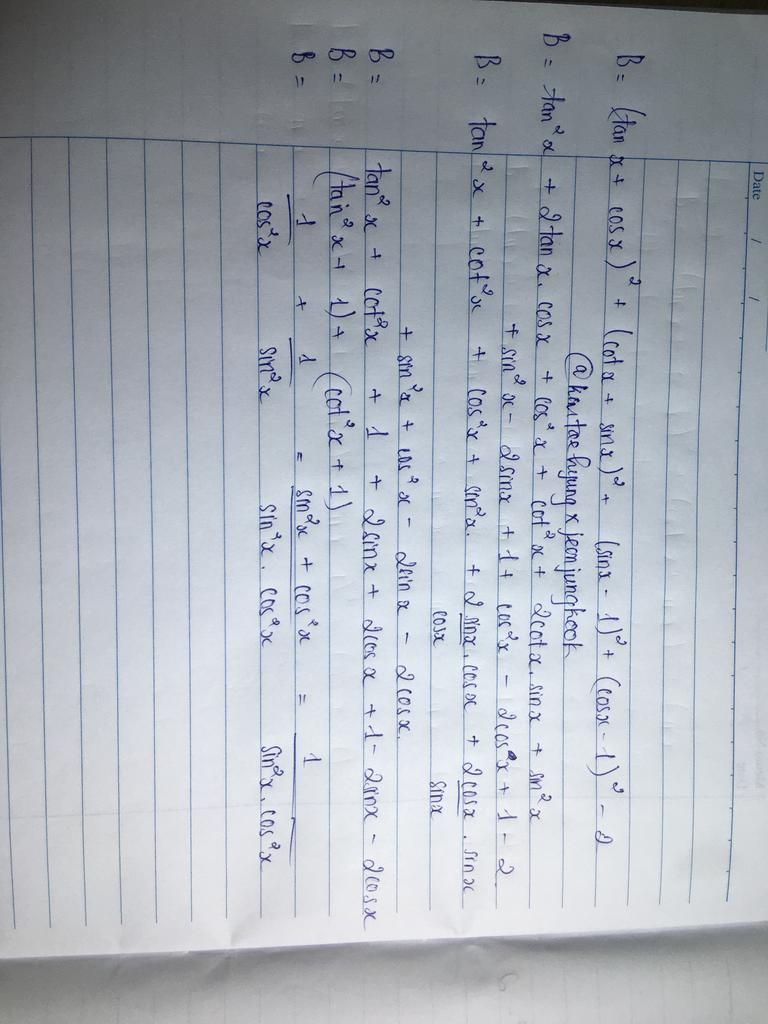 Date / /
B = (tan x + cosx)² + (cotx + sinx)² + (sinx - 1)² + (cosx - 1)² - 2
@kimtaehyungxjeonjungkook
B = tan²x + 2tanx.cosx + cos²x + cot²x + 2cotx.sinx + sin²x
+ sin²x - 2sinx + 1 + cos²x - 2cos²x + 1 - 2
B = tan²x + cot²x + cos²x + sin²x. + 2 sinx/cosx . cosx + 2 cosx/sinx . sinx
+ sin²x + cos²x - 2sinx - 2cosx.
B = tan²x + cot²x + 1 + 2sinx + 2cosx + 1 - 2sinx - 2cosx
B = (tan²x + 1) + (cot²x + 1)
B = 1/cos²x + 1/sin²x = sin²x + cos²x/sin²x.cos²x = 1/sin²x.cos²x